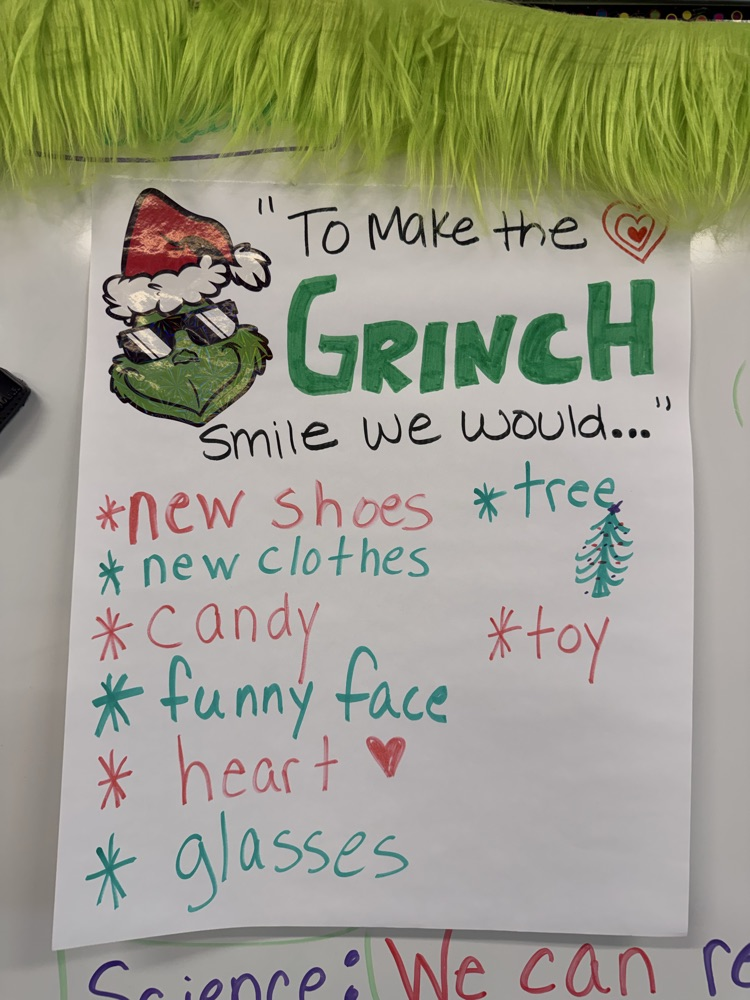 "To Make the
GRINCH
smile we would..."
*new shoes
*new clothes
*candy
*funny face
*heart
*glasses
*tree
*toy
Science: We can re